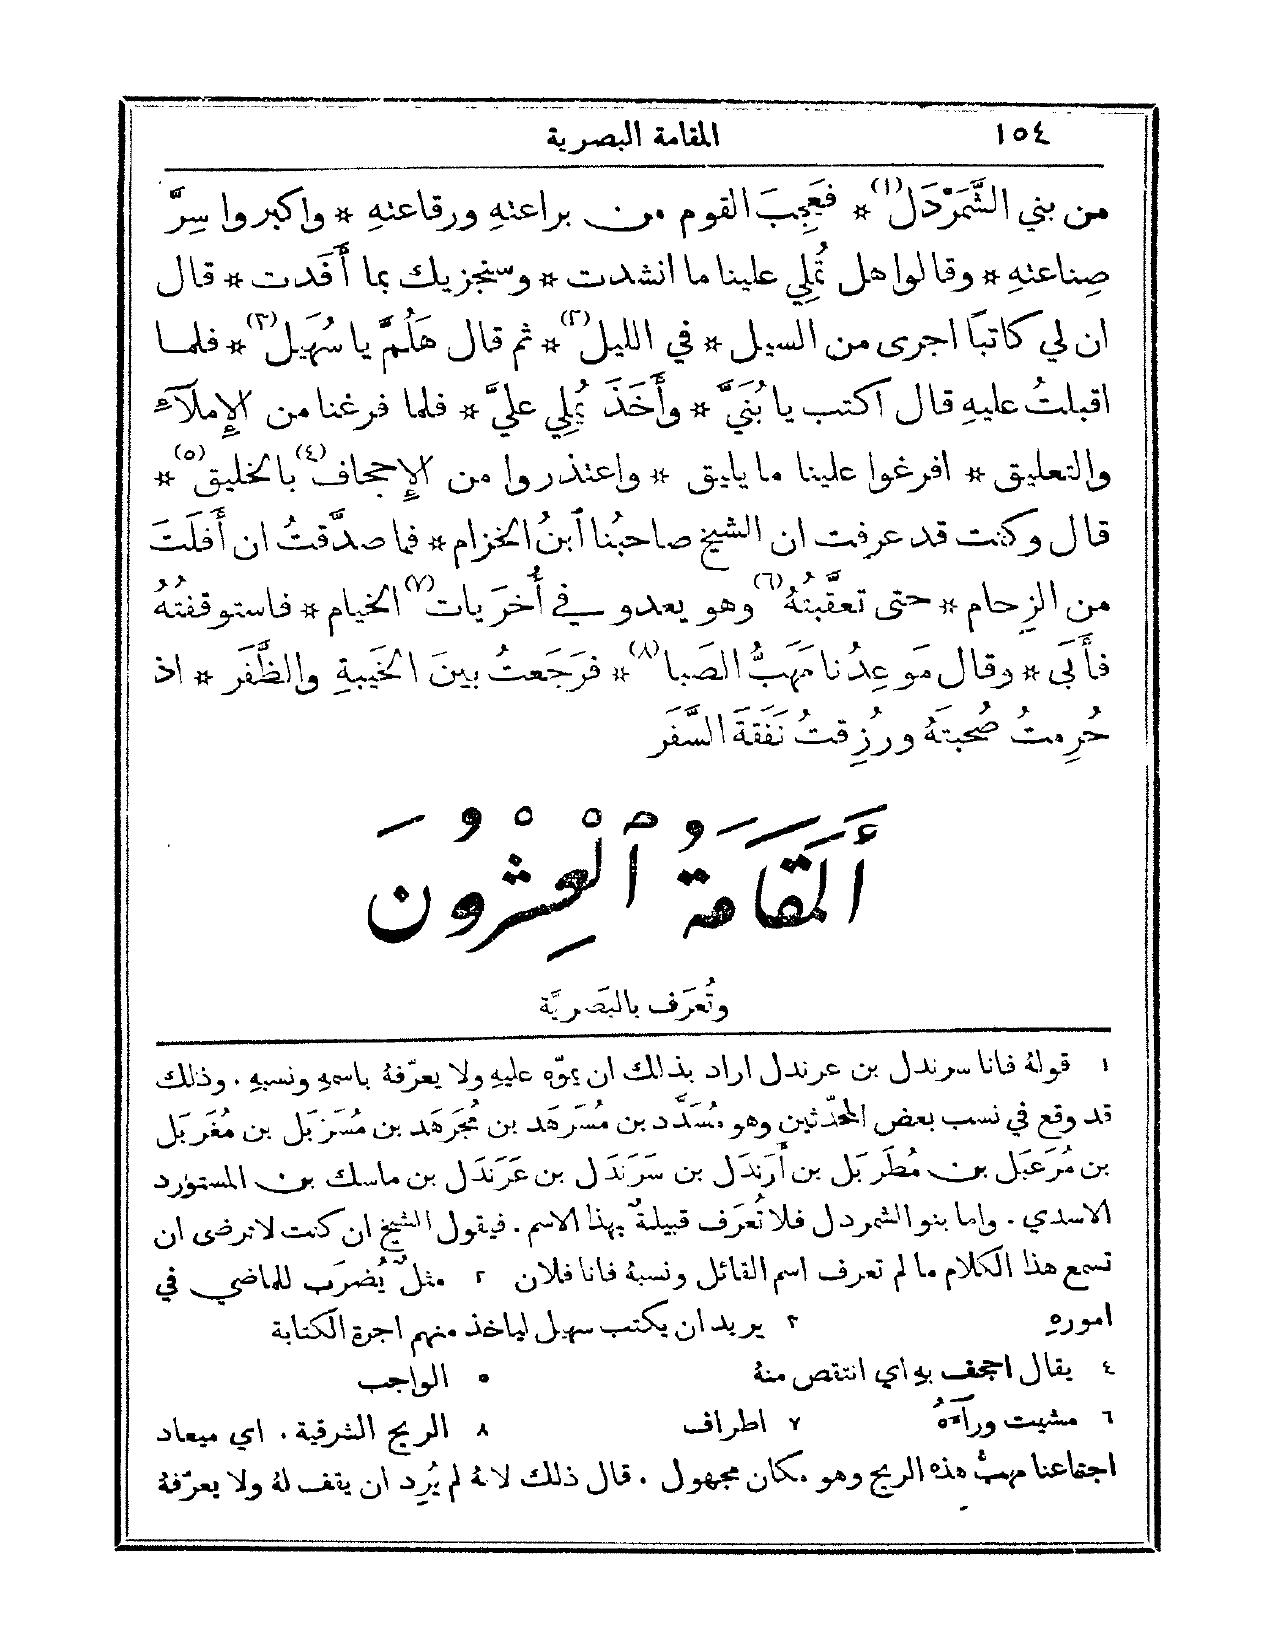 ١٥٤ المقامة البصرية
من بني الشَّمَرْدَل(١) * فَعَجِبَ القوم من براعتهِ ورقاعتهِ * واكبروا سِرَّ
صِناعتهِ * وقالوا هل تُملِي علينا ما انشدت * وسنجزيك بما أَفَدت * قال
ان لي كاتبًا اجرى من السيل * في الليل(٢) * ثم قال هَلُمَّ يا سُهَيل(٣) * فلما
اقبلتُ عليهِ قال اكتب يا بُنَيَّ * وأَخَذَ يُملِي عليَّ * فلما فرغنا من الإِملآءِ
والتعليق * افرغوا علينا ما يليق * واعتذروا من الإِجحاف(٤) بالخليق(٥) *
قال وكنت قد عرفت ان الشيخ صاحبُنا ٱبنُ الخزام * فما صدَّقتُ ان أَفلَتَ
من الزِحام * حتى تعقَّبتهُ(٦) وهو يعدو في أُخرَيات(٧) الخيام * فاستوقفتهُ
فأَبَى * وقال مَوعِدُنا مَهَبُّ الصَبا(٨) * فَرَجَعتُ بينَ الخَيبةِ والظَّفَر * اذ
حُرِمتُ صُحبتَهُ ورُزِقتُ نَفَقةَ السَّفَر
أَلمَقَامَةُ ٱلْعِشْرُونَ
وتُعرَف بالبَصَريَّة
١ قولهُ فانا سرندل بن عرندل اراد بذلك ان يموّه عليهِ ولا يعرّفهُ باسمهِ ونسبهِ . وذلك
قد وقع في نسب بعض المحدّثين وهو مُسَدَّد بن مُسَرهَد بن مُجَرهَد بن مُسَربَل بن مُغَربَل
بن مُرَعبَل بن مُطَربَل بن أَرَندَل بن سَرَندَل بن عَرَندَل بن ماسك بن المستورد
الاسدي . واما بنو الشمردل فلا تُعرَف قبيلةٌ بهذا الاسم . فيقول الشيخ ان كنت لا ترضى ان
تسمع هذا الكلام ما لم تعرف اسم القائل ونسبهُ فانا فلان ٢ مثلٌ يُضرَب للماضي في
امورهِ ٣ يريد ان يكتب سهيل لياخذ منهم اجرة الكتابة
٤ يقال اجحف بهِ اي انتقص منهُ ٥ الواجب
٦ مشيت ورآءَهُ ٧ اطراف ٨ الريح الشرقية . اي ميعاد
اجتماعنا مهبّ هذه الريح وهو مكان مجهول . قال ذلك لانهُ لم يُرِد ان يقف لهُ ولا يعرّفهُ